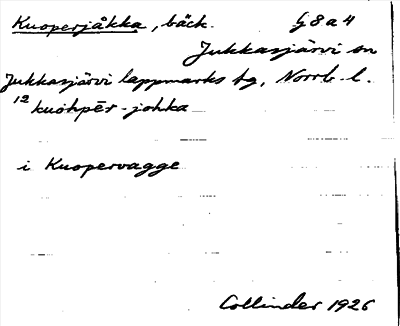 Kuoperjåkka, bäck. G 8 a 4
Jukkasjärvi sn
Jukkasjärvi lappmarks tg, Norrb. l.
12 kuohpēr-johka
i Kuopervagge
Collinder 1926